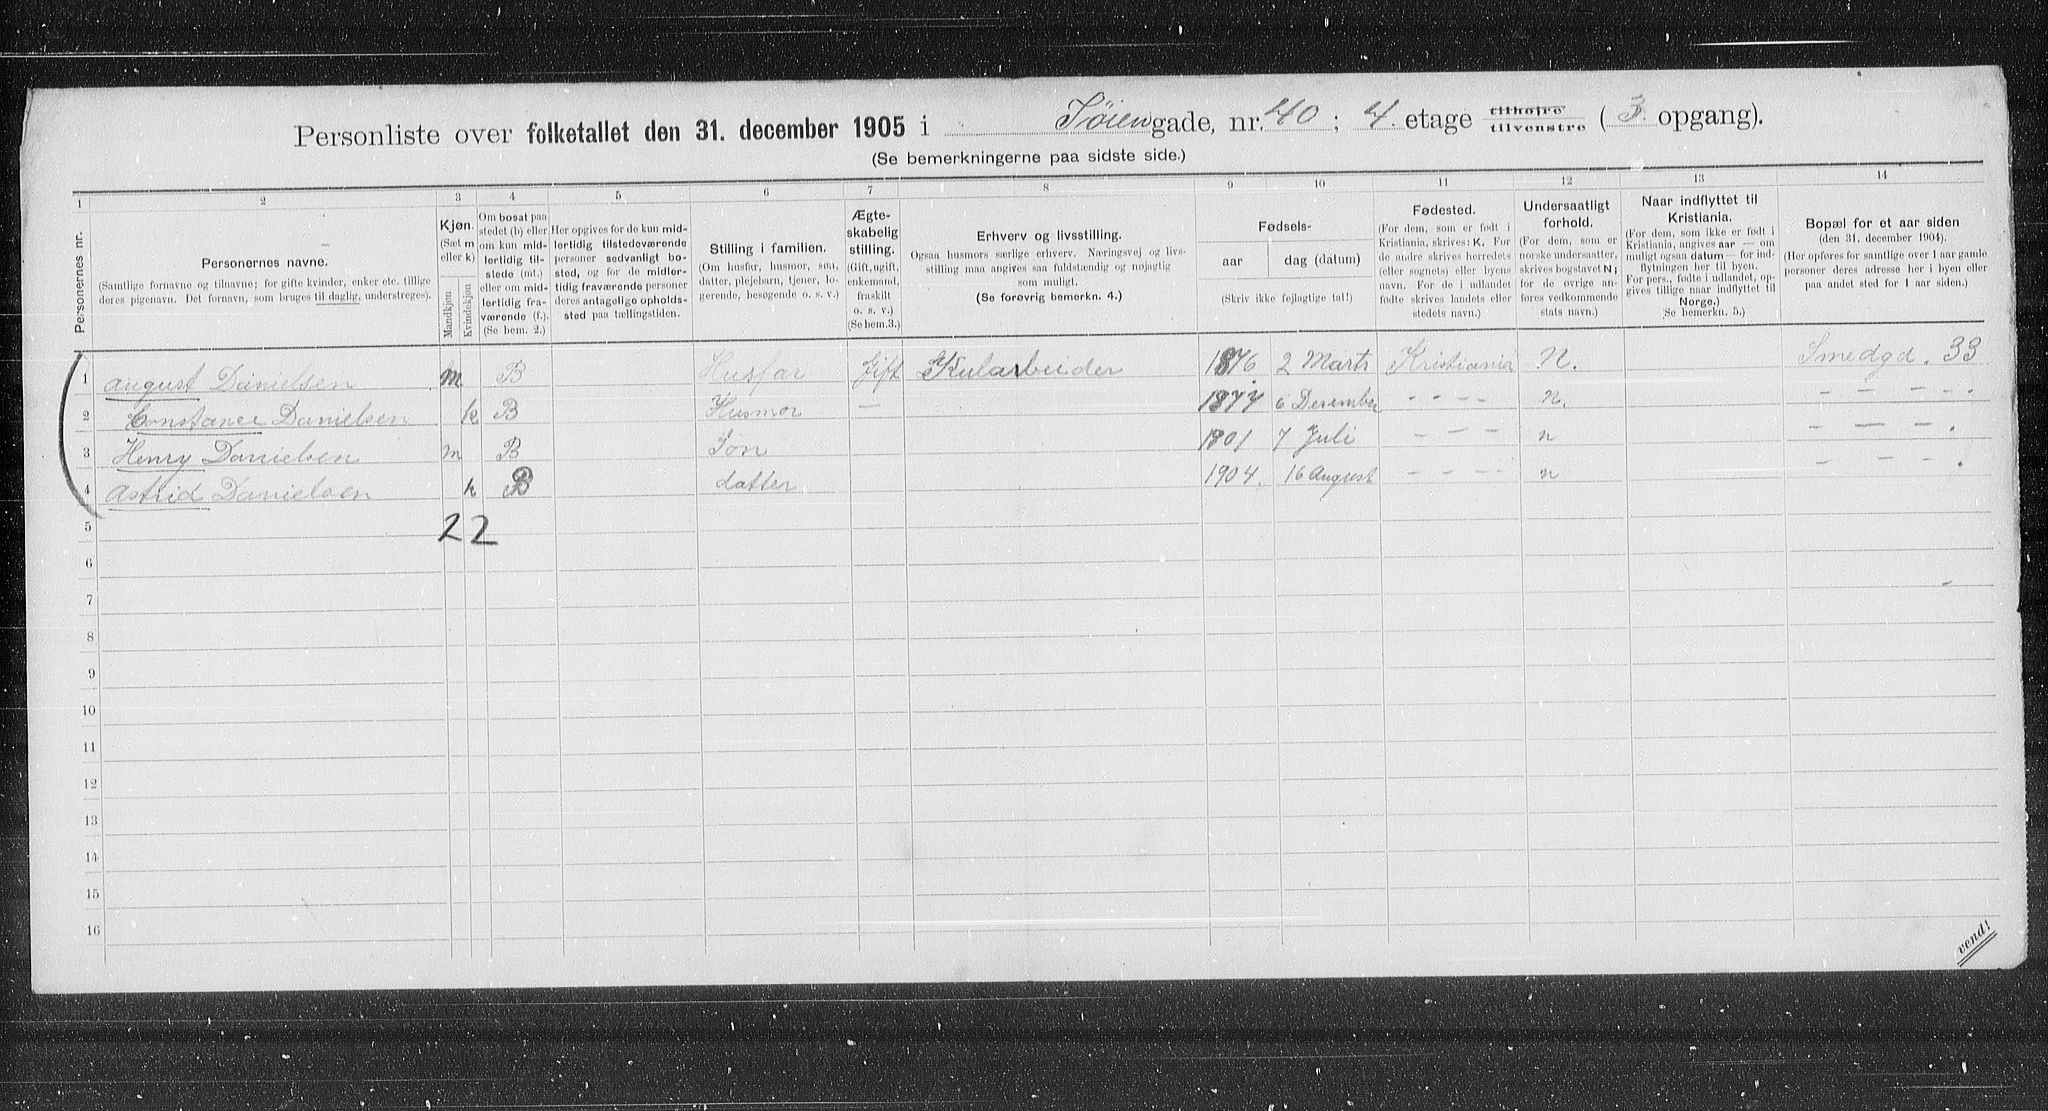 Personliste over folketallet den 31. december 1905 i Tøiengade, nr. 40; 4. etage tilhøjre tilvenstre (3. opgang).
(Se bemerkningerne paa sidste side.)
1 2 3 4 5 6 7 8 9 10 11 12 13 14
Personernes nr.
Personernes navne.
(Samtlige fornavne og tilnavne; for gifte kvinder, enker etc. tillige
deres pigenavn. Det fornavn, som bruges til daglig, understreges).
Kjøn.
(Sæt m
eller k)
Mandkjøn
Kvindekjøn
Om bosat paa
stedet (b) eller
om kun mid-
lertidig til-
stede (mt.)
eller om mid-
lertidig fra-
værende (f.).
(Se bem. 2.)
Her opgives for de kun mid-
lertidig tilstedeværende
personer sedvanligt bo-
sted, og for de midler-
tidig fraværende personer
deres antagelige opholds-
sted paa tællingstiden.
Stilling i familien.
(Om husfar, husmor, søn,
datter, plejebarn, tjener, lo-
gerende, besøgende o. s. v.)
Ægte-
skabelig
stilling.
(Gift, ugift,
enkemand,
fraskilt
o. s. v.)
(Se bem.3.)
Erhverv og livsstilling.
Ogsaa husmors særlige erhverv. Næringsvej og livs-
stilling maa angives saa fuldstændig og nøjagtig
som muligt.
(Se forøvrig bemerkn. 4.)
Fødsels-
aar dag (datum)
(Skriv ikke fejlagtige tal!)
Fødested.
(For dem, som er født i
Kristiania, skrives: K. For
de andre skrives herredets
(eller sognets) eller byens
navn. For de i udlandet
fødte skrives landets eller
stedets navn.)
Undersaatligt
forhold.
(For dem, som er
norske undersaatter,
skrives bogstavet N;
for de øvrige an-
føres vedkommende
stats navn.)
Naar indflyttet til
Kristiania.
(For dem, som ikke er født i
Kristiania, angives aar — om
muligt ogsaa datum — for ind-
flytningen her til byen.
For pers., fødte i udlandet, op-
gives tillige naar indflyttet til
Norge.)
(Se bemerkn. 5.)
Bopæl for et aar siden
(den 31. december 1904).
(Her opføres for samtlige over 1 aar gamle
personer deres adresse her i byen eller
paa andet sted for 1 aar siden.)
1 August Danielsen m B Husfar Gift Kularbeider 1876 2 Marts Kristiania N. Smedgd. 33
2 Constance Danielsen k B Husmor — 1877 6 Desember - - - - N. - - - -
3 Henry Danielsen m B Søn 1901 7 Juli - - - n - - - .
4 Astrid Danielsen k B datter 1904. 16 August - - - - n - - - .
5 2 2
6
7
8
9
10
11
12
13
14
15
16
vend!